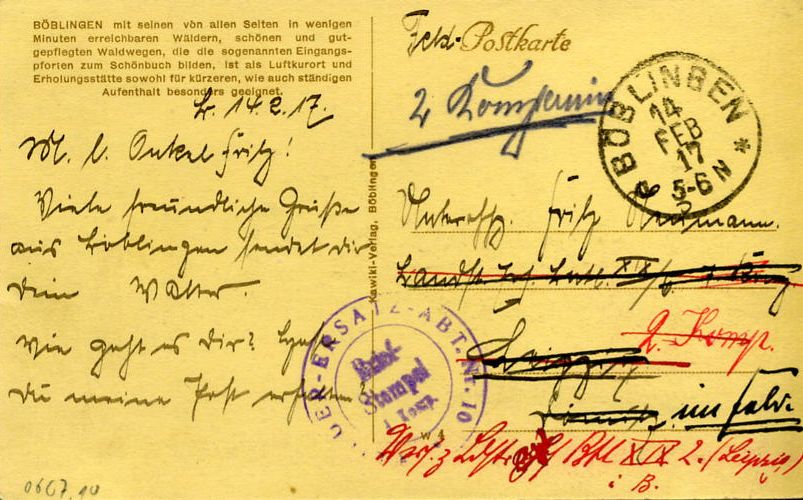 BÖBLINGEN mit seinen von allen Seiten in wenigen
Minuten erreichbaren Wäldern, schönen und gut-
gepflegten Waldwegen, die die sogenannten Eingangs-
pforten zum Schönbuch bilden, ist als Luftkurort und
Erholungsstätte sowohl für kürzeren, wie auch ständigen
Aufenthalt besonders geeignet.
14.2.17.
M. l. Onkel Fritz!
Viele freundliche Grüße
aus Böblingen sendet dir
dein Walter.
Wie geht es dir? Hast
du meine Post erhalten?
0607.10
Kawiki-Verlag, Böblingen
Feld-Postkarte
2 Kompanie
BÖBLINGEN *
14
FEB
17
5-6 N
Unteroff. Fritz
XIX
2. Komp.
im Felde.
ERSATZ-ABT. Nr. 10
Brief-
Stempel
1 Komp.
W 4
Btl XIX 2. (Leipzig)
i B.